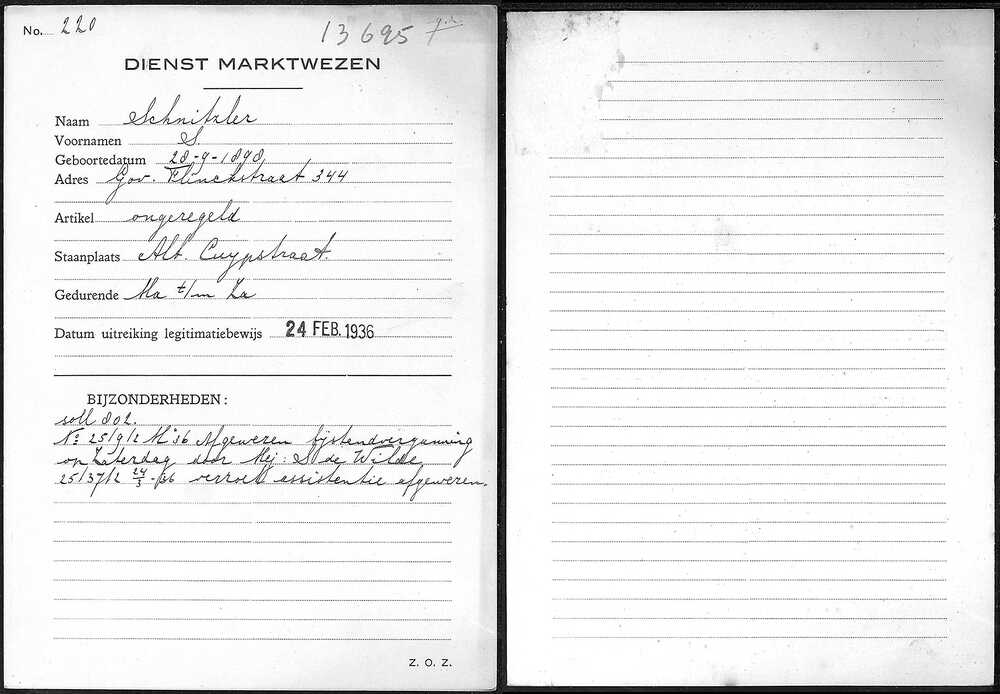 No. 220
13695
DIENST MARKTWEZEN
Naam Schnitzler
Voornamen S.
Geboortedatum 28-9-1898
Adres Gov. Flinckstraat 344
Artikel ongeregeld
Staanplaats Alb. Cuypstraat.
Gedurende Ma t/m Za
Datum uitreiking legitimatiebewijs 24 FEB. 1936
BIJZONDERHEDEN:
soll 802.
No 25/9/2 M '36 Afgewezen bijstandvergunning
op Zaterdag door Mej: S de Wilde
25/37/2 24/3-36 verzoek assistentie afgewezen.
Z. O. Z.